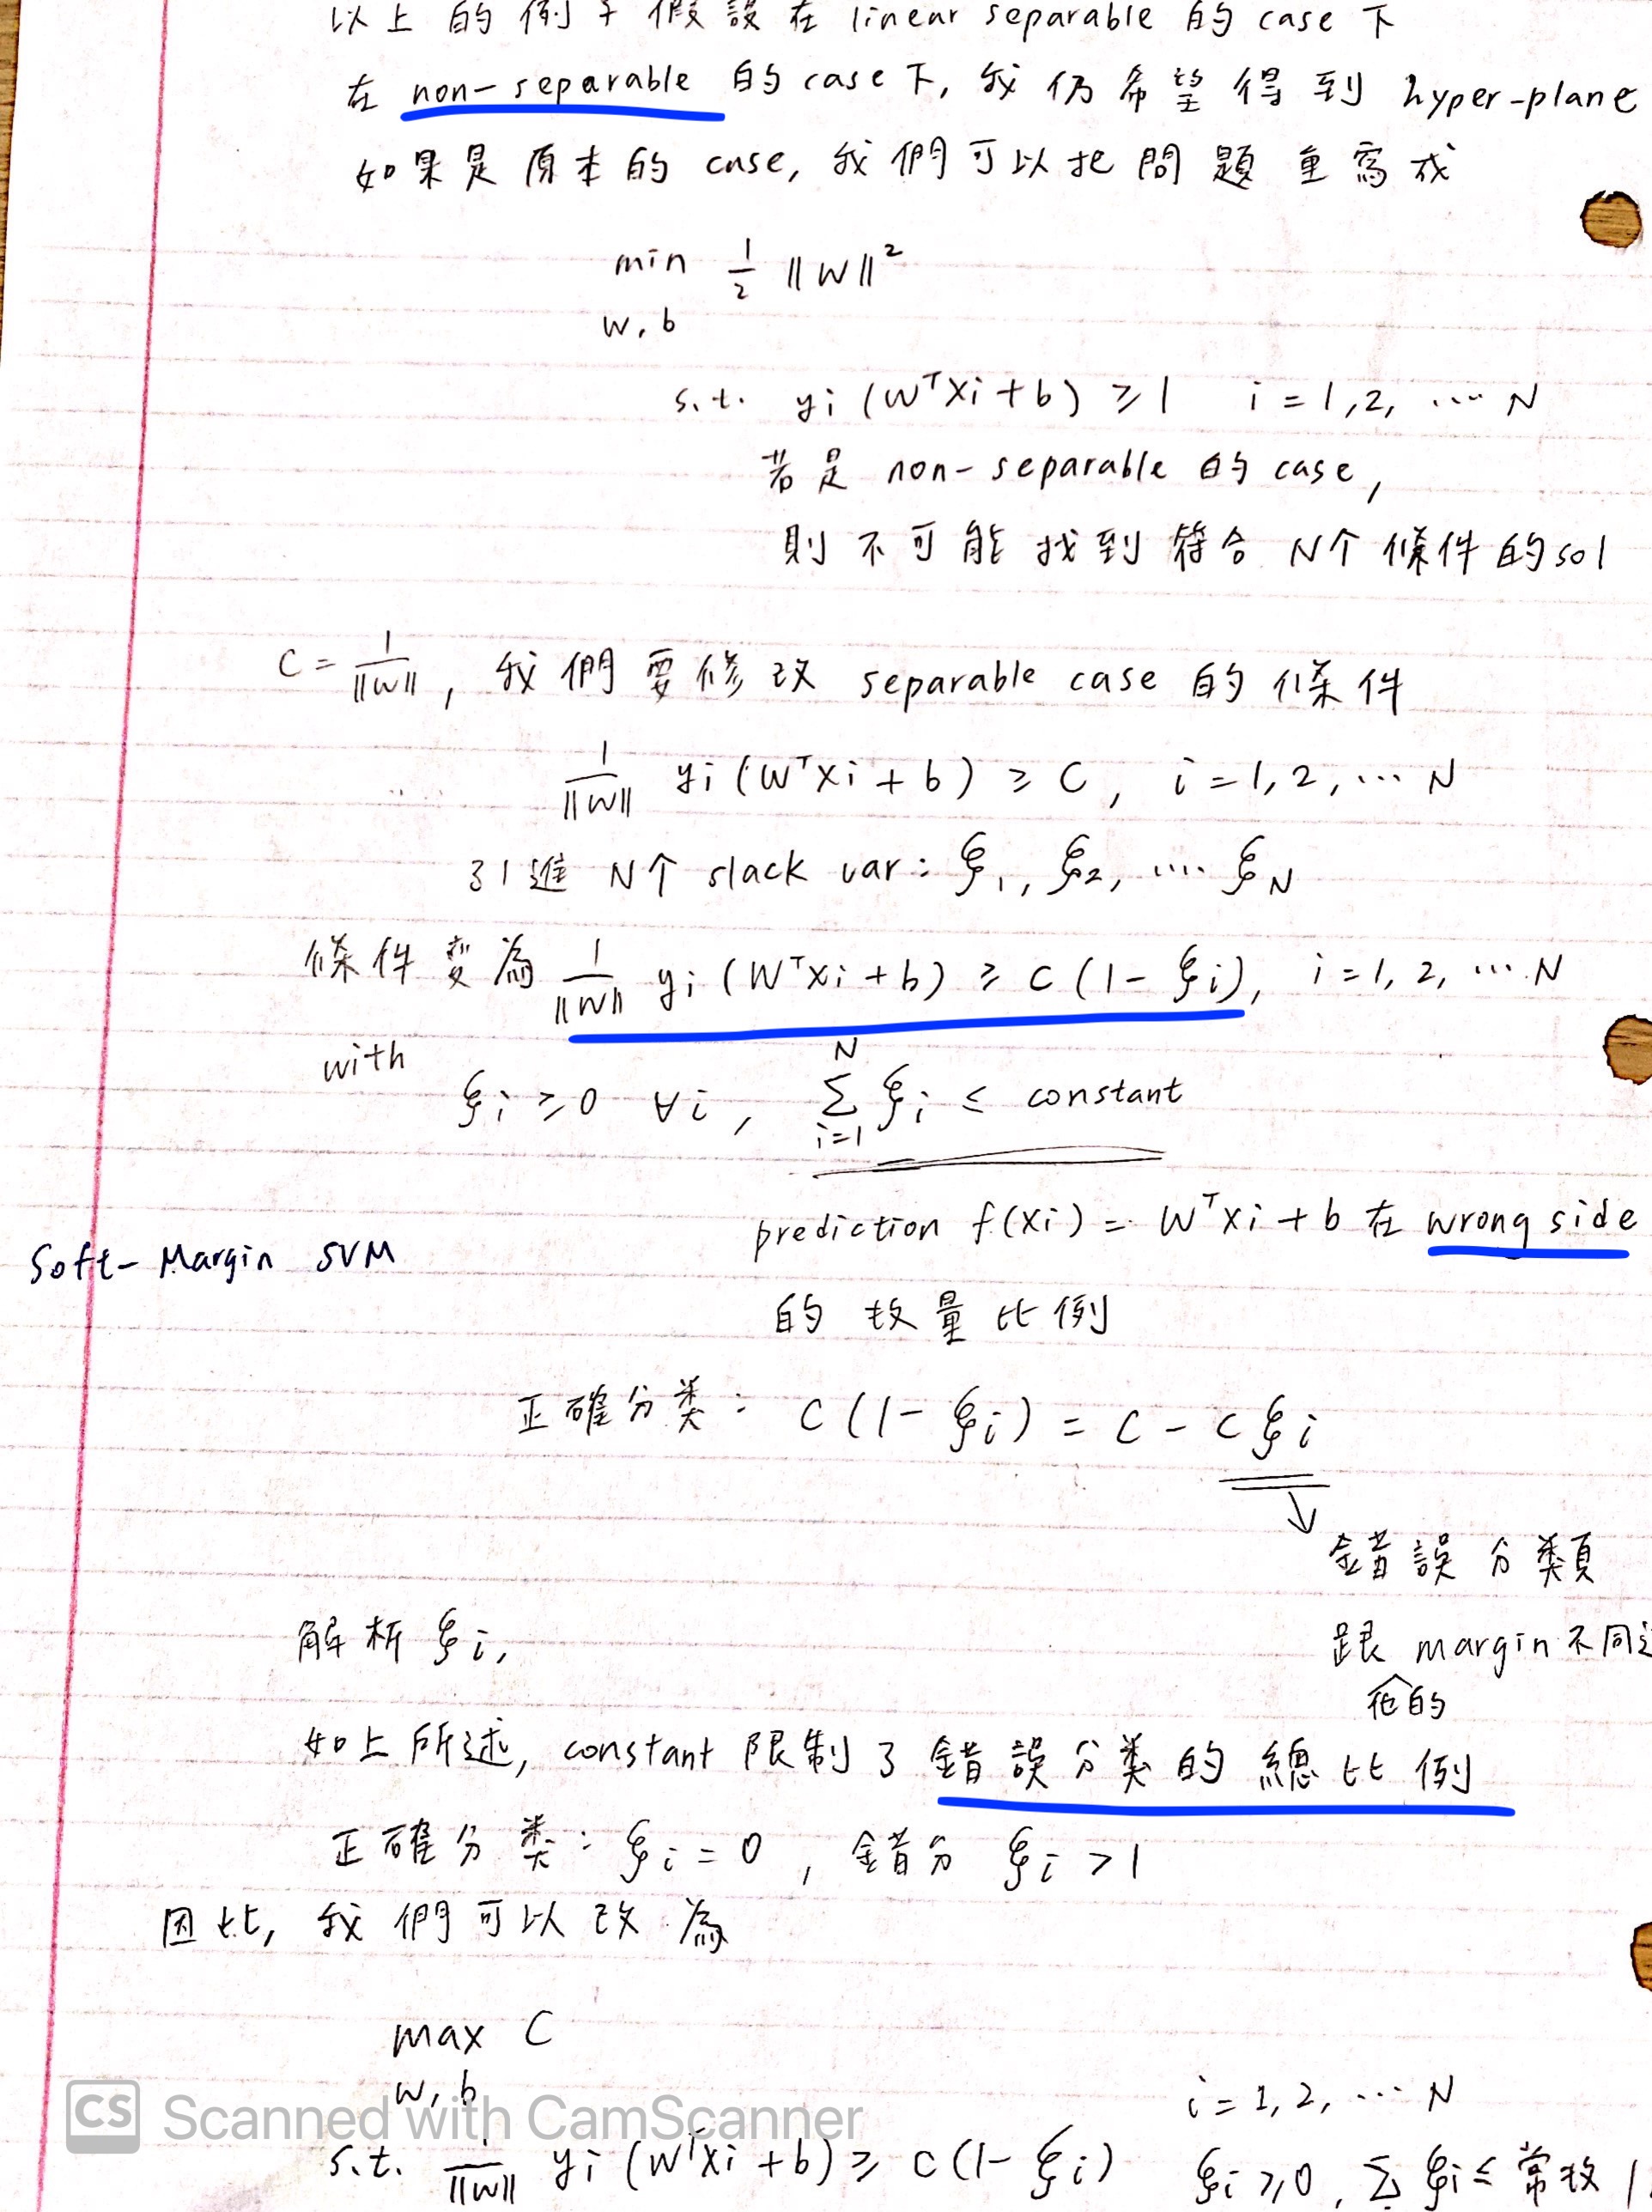 以上的例子假設在 linear separable 的 case 下
在 non-separable 的 case 下, 我仍希望得到 hyper-plane
如果是原本的 case, 我們可以把問題重寫成
min 1/2 ||W||²
w, b
s.t. yi (WᵀXi + b) ≥ 1 i = 1, 2, ... N
若是 non-separable 的 case,
則不可能找到符合 N个條件的 sol
C = 1/||W||, 我們要修改 separable case 的條件
1/||W|| yi (WᵀXi + b) ≥ C, i = 1, 2, ... N
引進 N个 slack var: ξ1, ξ2, .... ξN
條件變為 1/||W|| yi (WᵀXi + b) ≥ C (1 - ξi), i = 1, 2, ... N
with ξi ≥ 0 ∀i, Σ_{i=1}^{N} ξi ≤ constant
prediction f(Xi) = WᵀXi + b 在 wrong side
Soft-Margin SVM
的数量比例
正確分类: C (1 - ξi) = C - Cξi
錯誤分類
解析 ξi,
跟 margin 不同
他的
如上所述, constant 限制了錯誤分类的總比例
正確分类: ξi = 0, 錯分 ξi > 1
因此, 我們可以改為
max C
w, b
i = 1, 2, ... N
s.t. 1/||W|| yi (WᵀXi + b) ≥ C (1 - ξi) ξi ≥ 0, Σ ξi ≤ 常数
CS Scanned with CamScanner